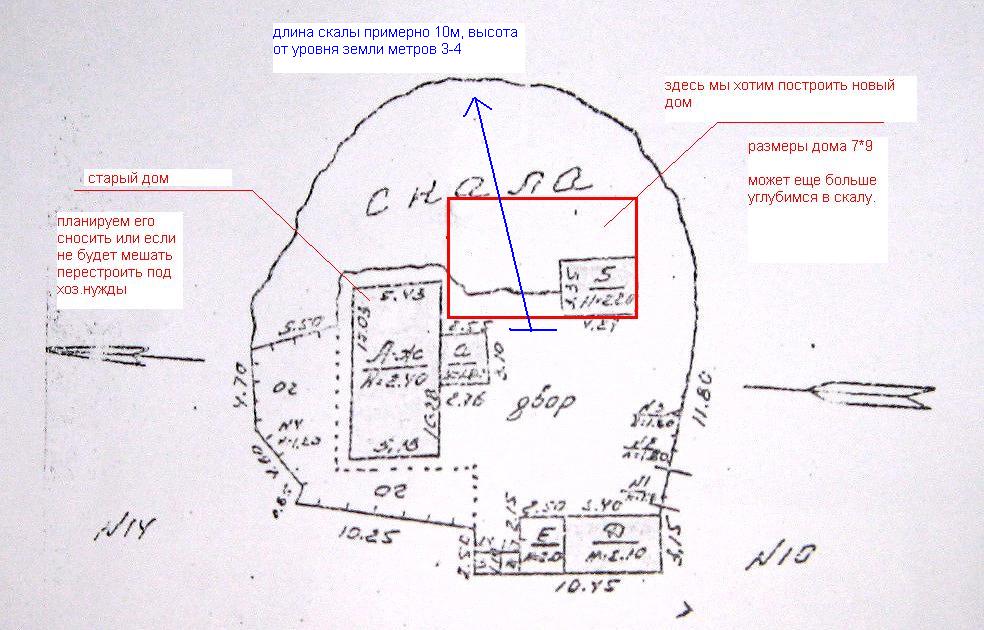 длина скалы примерно 10м, высота
от уровня земли метров 3-4
здесь мы хотим построить новый
дом
размеры дома 7*9
может еще больше
углубимся в скалу.
старый дом
планируем его
сносить или если
не будет мешать
перестроить под
хоз.нужды
скала
5.43
3.35
5.50
2.55
а
3.10
2.76
двор
4.70
11.80
5.13
10.25
2.50
2.15
2.50
3.40
Е
Д
н=2.10
3.15
10.45
N14
N10